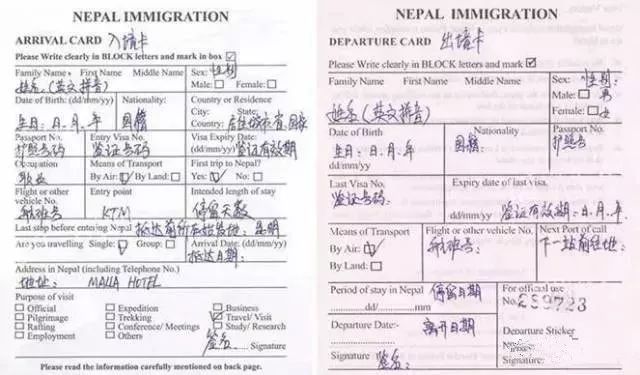 NEPAL IMMIGRATION
ARRIVAL CARD 入境卡
Please Write clearly in BLOCK letters and mark in box
Family Name First Name Middle Name Sex: 性别
姓名 (英文拼音) Male: Female:
Date of Birth: (dd/mm/yy) Nationality: Country or Residence
City: State:
生日: 日. 月. 年 国籍 Country: 居住城市. 省. 国家
Passport No. Entry Visa No. Visa Expiry Date:
护照号码 签证号码 (dd/mm/yy) 签证有效期
Occupation Means of Transport First trip to Nepal?
职业 By Air: By Land: Yes: No:
Flight or other vehicle No. Entry point Intended length of stay
航班号 KTM 停留天数
Last stop before entering Nepal 抵达前所在始发地: 昆明
Are you travelling Single: Group: Arrival Date: (dd/mm/yy)
抵达日期:
Address in Nepal (including Telephone No.)
地址: MALLA HOTEL
Purpose of visit
Official Expedition Business
Pilgrimage Trekking Travel/ Visit
Rafting Conference/ Meetings Study/ Research
Employment Others 签名 Signature
Please read the information carefully mentioned on back page.
NEPAL IMMIGRATION
DEPARTURE CARD 出境卡
Please Write clearly in BLOCK letters and mark
Family Name First Name Middle Name Sex: 性别:
姓名 (英文拼音) Male: 男
Female: 女
Date of Birth Nationality Passport No.
生日: 日. 月. 年 国籍: 护照号
Last Visa No. Expiry date of last visa
签证号码: 签证有效期: 日. 月. 年
Means of Transport Flight or other vehicle No. Next Port of call
By Air: 航班号: 下一站前往地:
By Land:
Period of stay in Nepal 停留日期 For official use
........dd/........mm No. 289723
Departure Date:- 离开日期 Departure Sticker
No:
Signature 签名: Signature: